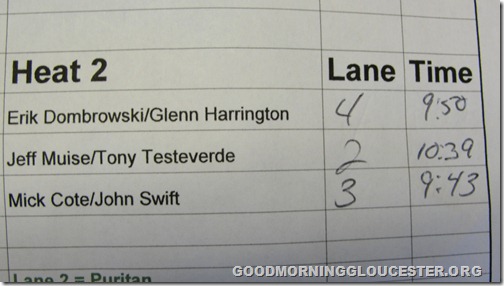 Heat 2 Lane Time
Erik Dombrowski/Glenn Harrington 4 9:50
Jeff Muise/Tony Testeverde 2 10:39
Mick Cote/John Swift 3 9:43
Lane 2 = Puritan
GOODMORNINGGLOUCESTER.ORG